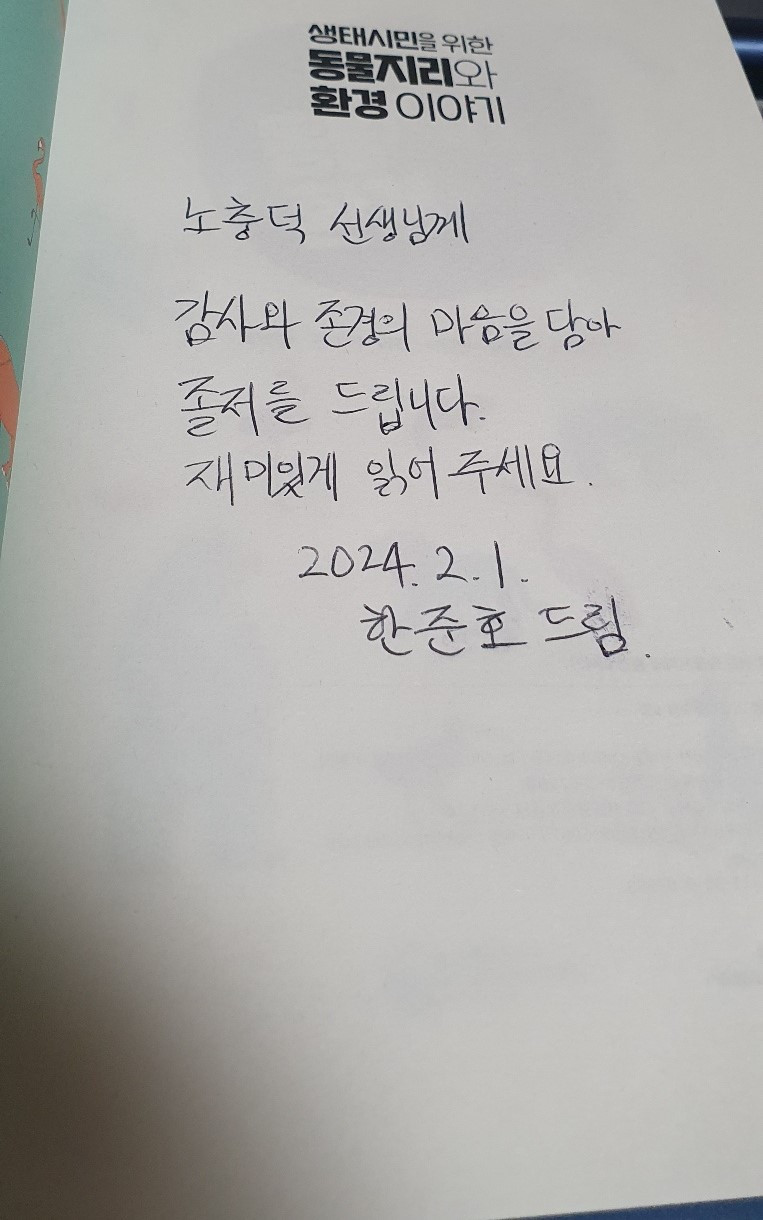 생태시민을 위한
동물지리와
환경 이야기
노충덕 선생님께
감사와 존경의 마음을 담아
졸저를 드립니다.
재미있게 읽어 주세요.
2024. 2. 1.
한준호 드림.